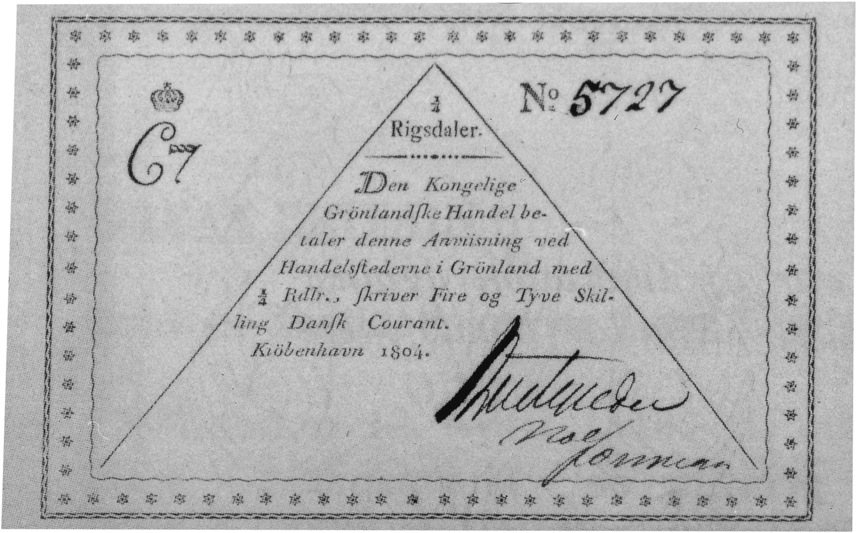 C7
No 5727
1/4
Rigsdaler.
Den Kongelige
Grönlandſke Handel be-
taler denne Anviisning ved
Handelsſtederne i Grönland med
1/4 Rdlr., ſkriver Fire og Tyve Skil-
ling Danſk Courant.
Kiöbenhavn 1804.